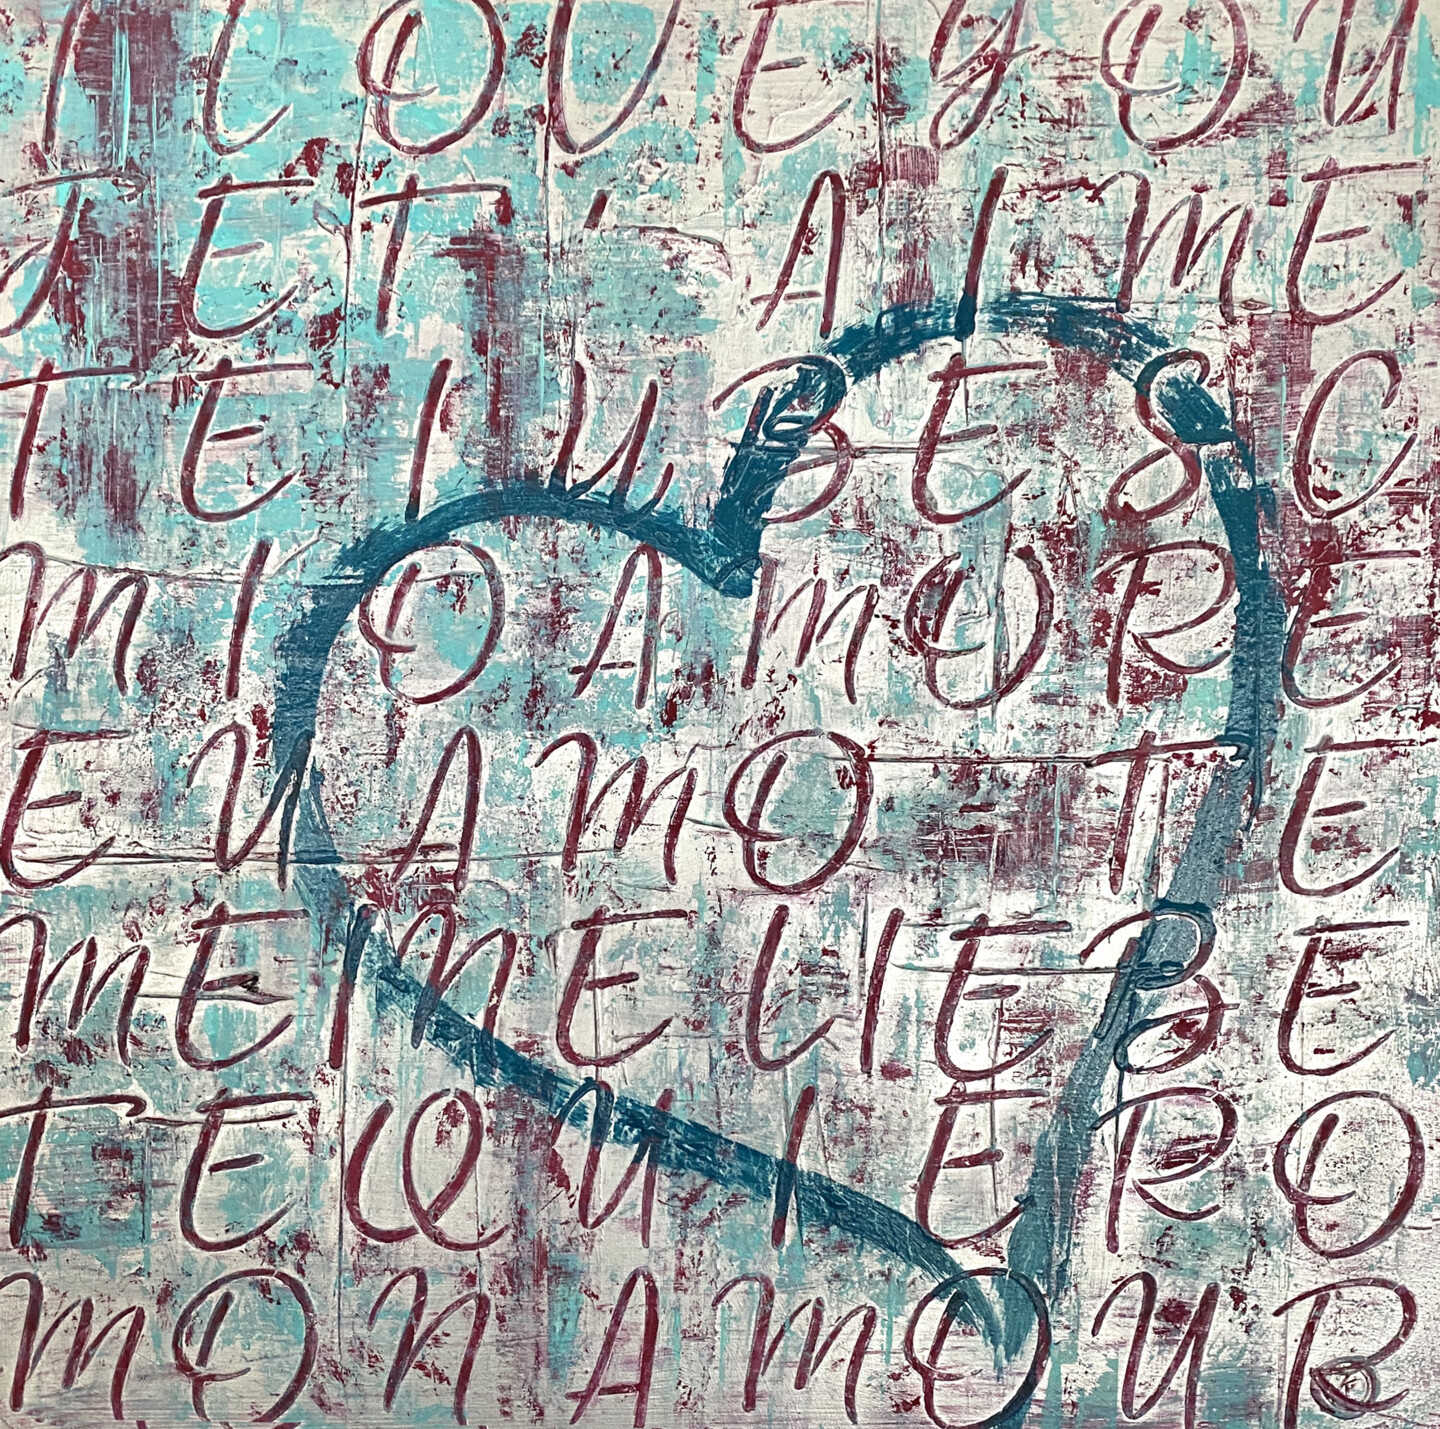 I LOVE YOU
JE T'AIME
TE IUBESC
MIO AMORE
EU AMO-TE
MEINE LIEBE
TE QUIERO
MON AMOUR